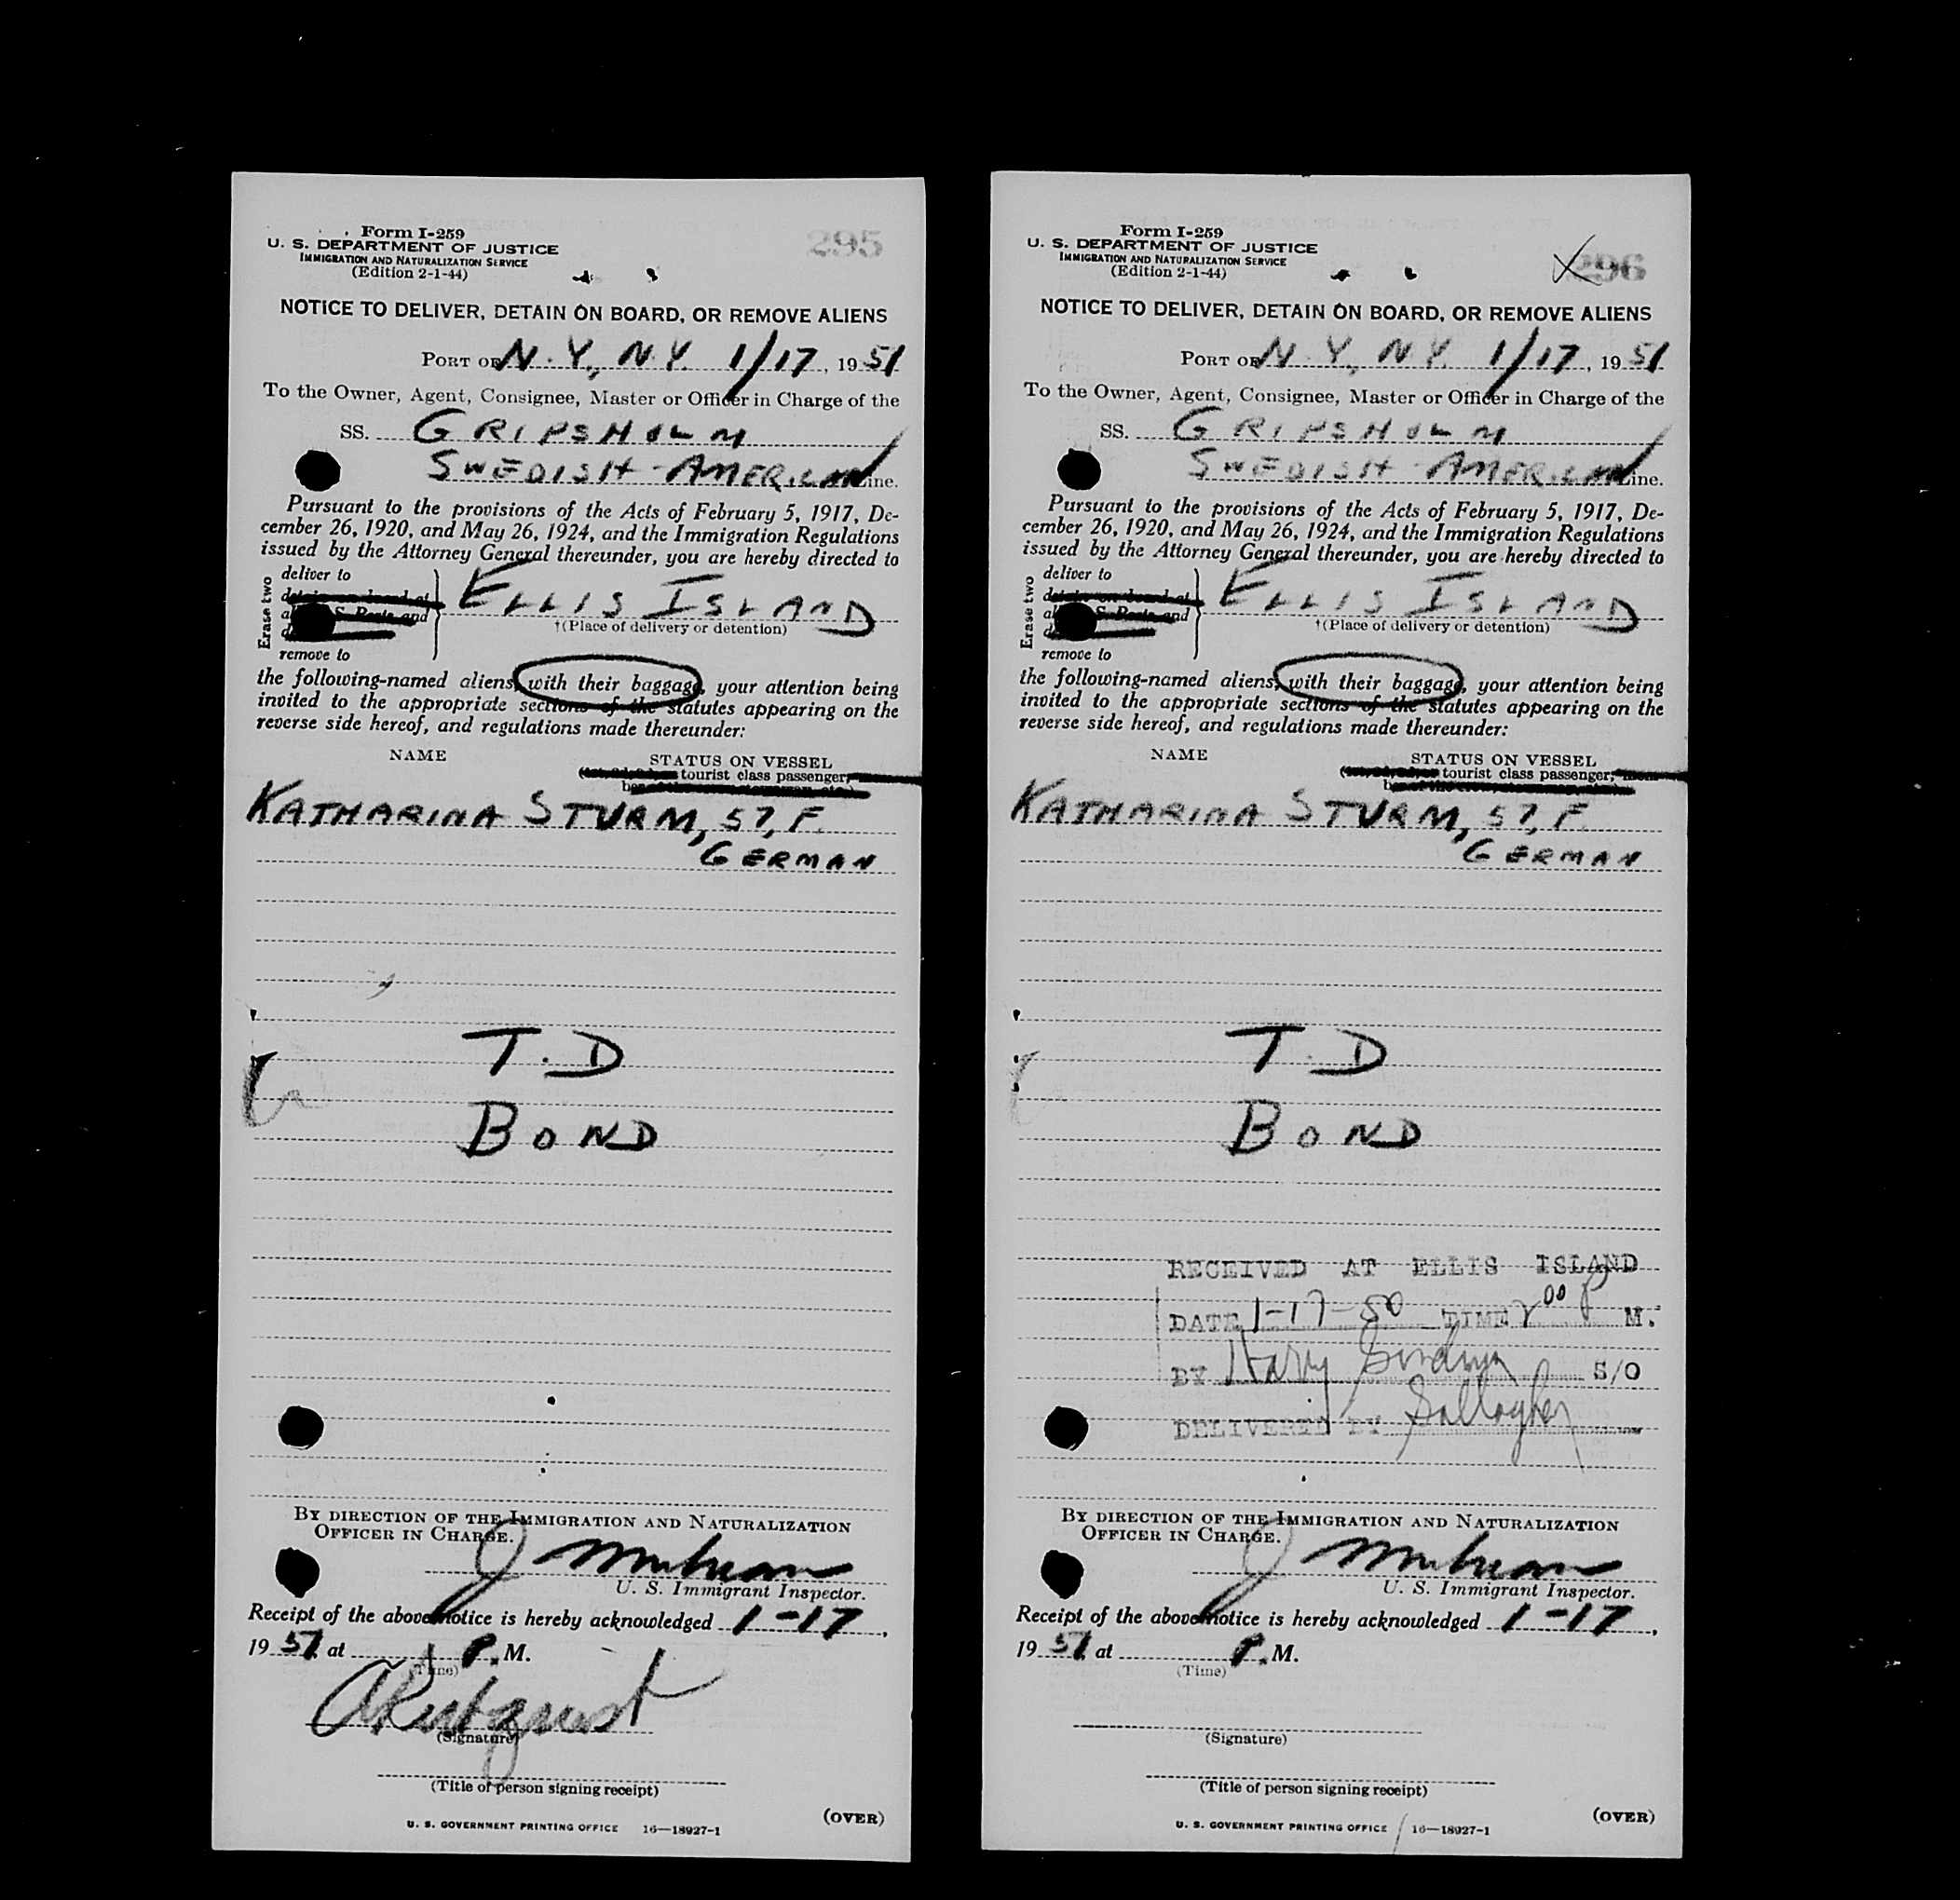 Form I-259
U. S. DEPARTMENT OF JUSTICE
IMMIGRATION AND NATURALIZATION SERVICE
(Edition 2-1-44)
295
NOTICE TO DELIVER, DETAIN ON BOARD, OR REMOVE ALIENS
PORT OF N.Y., N.Y. 1/17, 1951
To the Owner, Agent, Consignee, Master or Officer in Charge of the
SS. GRIPSHOLM
SWEDISH-AMERICAN Line.
Pursuant to the provisions of the Acts of February 5, 1917, De-
cember 26, 1920, and May 26, 1924, and the Immigration Regulations
issued by the Attorney General thereunder, you are hereby directed to
Erase two
deliver to
detain on board at
S. Ports and
remove to
ELLIS ISLAND
†(Place of delivery or detention)
the following-named aliens, with their baggage, your attention being
invited to the appropriate sections of the statutes appearing on the
reverse side hereof, and regulations made thereunder:
NAME
STATUS ON VESSEL
tourist class passenger,
KATHARINA STURM, 57, F.
GERMAN
T.D
BOND
BY DIRECTION OF THE IMMIGRATION AND NATURALIZATION
OFFICER IN CHARGE.
U. S. Immigrant Inspector.
Receipt of the above notice is hereby acknowledged 1-17,
1951 at P.M.
(Time)
(Signature)
(Title of person signing receipt)
(OVER)
U. S. GOVERNMENT PRINTING OFFICE 16—18927-1
Form I-259
U. S. DEPARTMENT OF JUSTICE
IMMIGRATION AND NATURALIZATION SERVICE
(Edition 2-1-44)
296
NOTICE TO DELIVER, DETAIN ON BOARD, OR REMOVE ALIENS
PORT OF N.Y., N.Y. 1/17, 1951
To the Owner, Agent, Consignee, Master or Officer in Charge of the
SS. GRIPSHOLM
SWEDISH-AMERICAN Line.
Pursuant to the provisions of the Acts of February 5, 1917, De-
cember 26, 1920, and May 26, 1924, and the Immigration Regulations
issued by the Attorney General thereunder, you are hereby directed to
Erase two
deliver to
detain on board at
S. Ports and
remove to
ELLIS ISLAND
†(Place of delivery or detention)
the following-named aliens, with their baggage, your attention being
invited to the appropriate sections of the statutes appearing on the
reverse side hereof, and regulations made thereunder:
NAME
STATUS ON VESSEL
tourist class passenger,
KATHARINA STURM, 57, F.
GERMAN
T.D
BOND
RECEIVED AT ELLIS ISLAND
DATE 1-17-50 TIME 2 00 P M.
BY Harry S/O
DELIVERED BY Gallagher
BY DIRECTION OF THE IMMIGRATION AND NATURALIZATION
OFFICER IN CHARGE.
U. S. Immigrant Inspector.
Receipt of the above notice is hereby acknowledged 1-17,
1951 at P.M.
(Time)
(Signature)
(Title of person signing receipt)
(OVER)
U. S. GOVERNMENT PRINTING OFFICE 16—18927-1